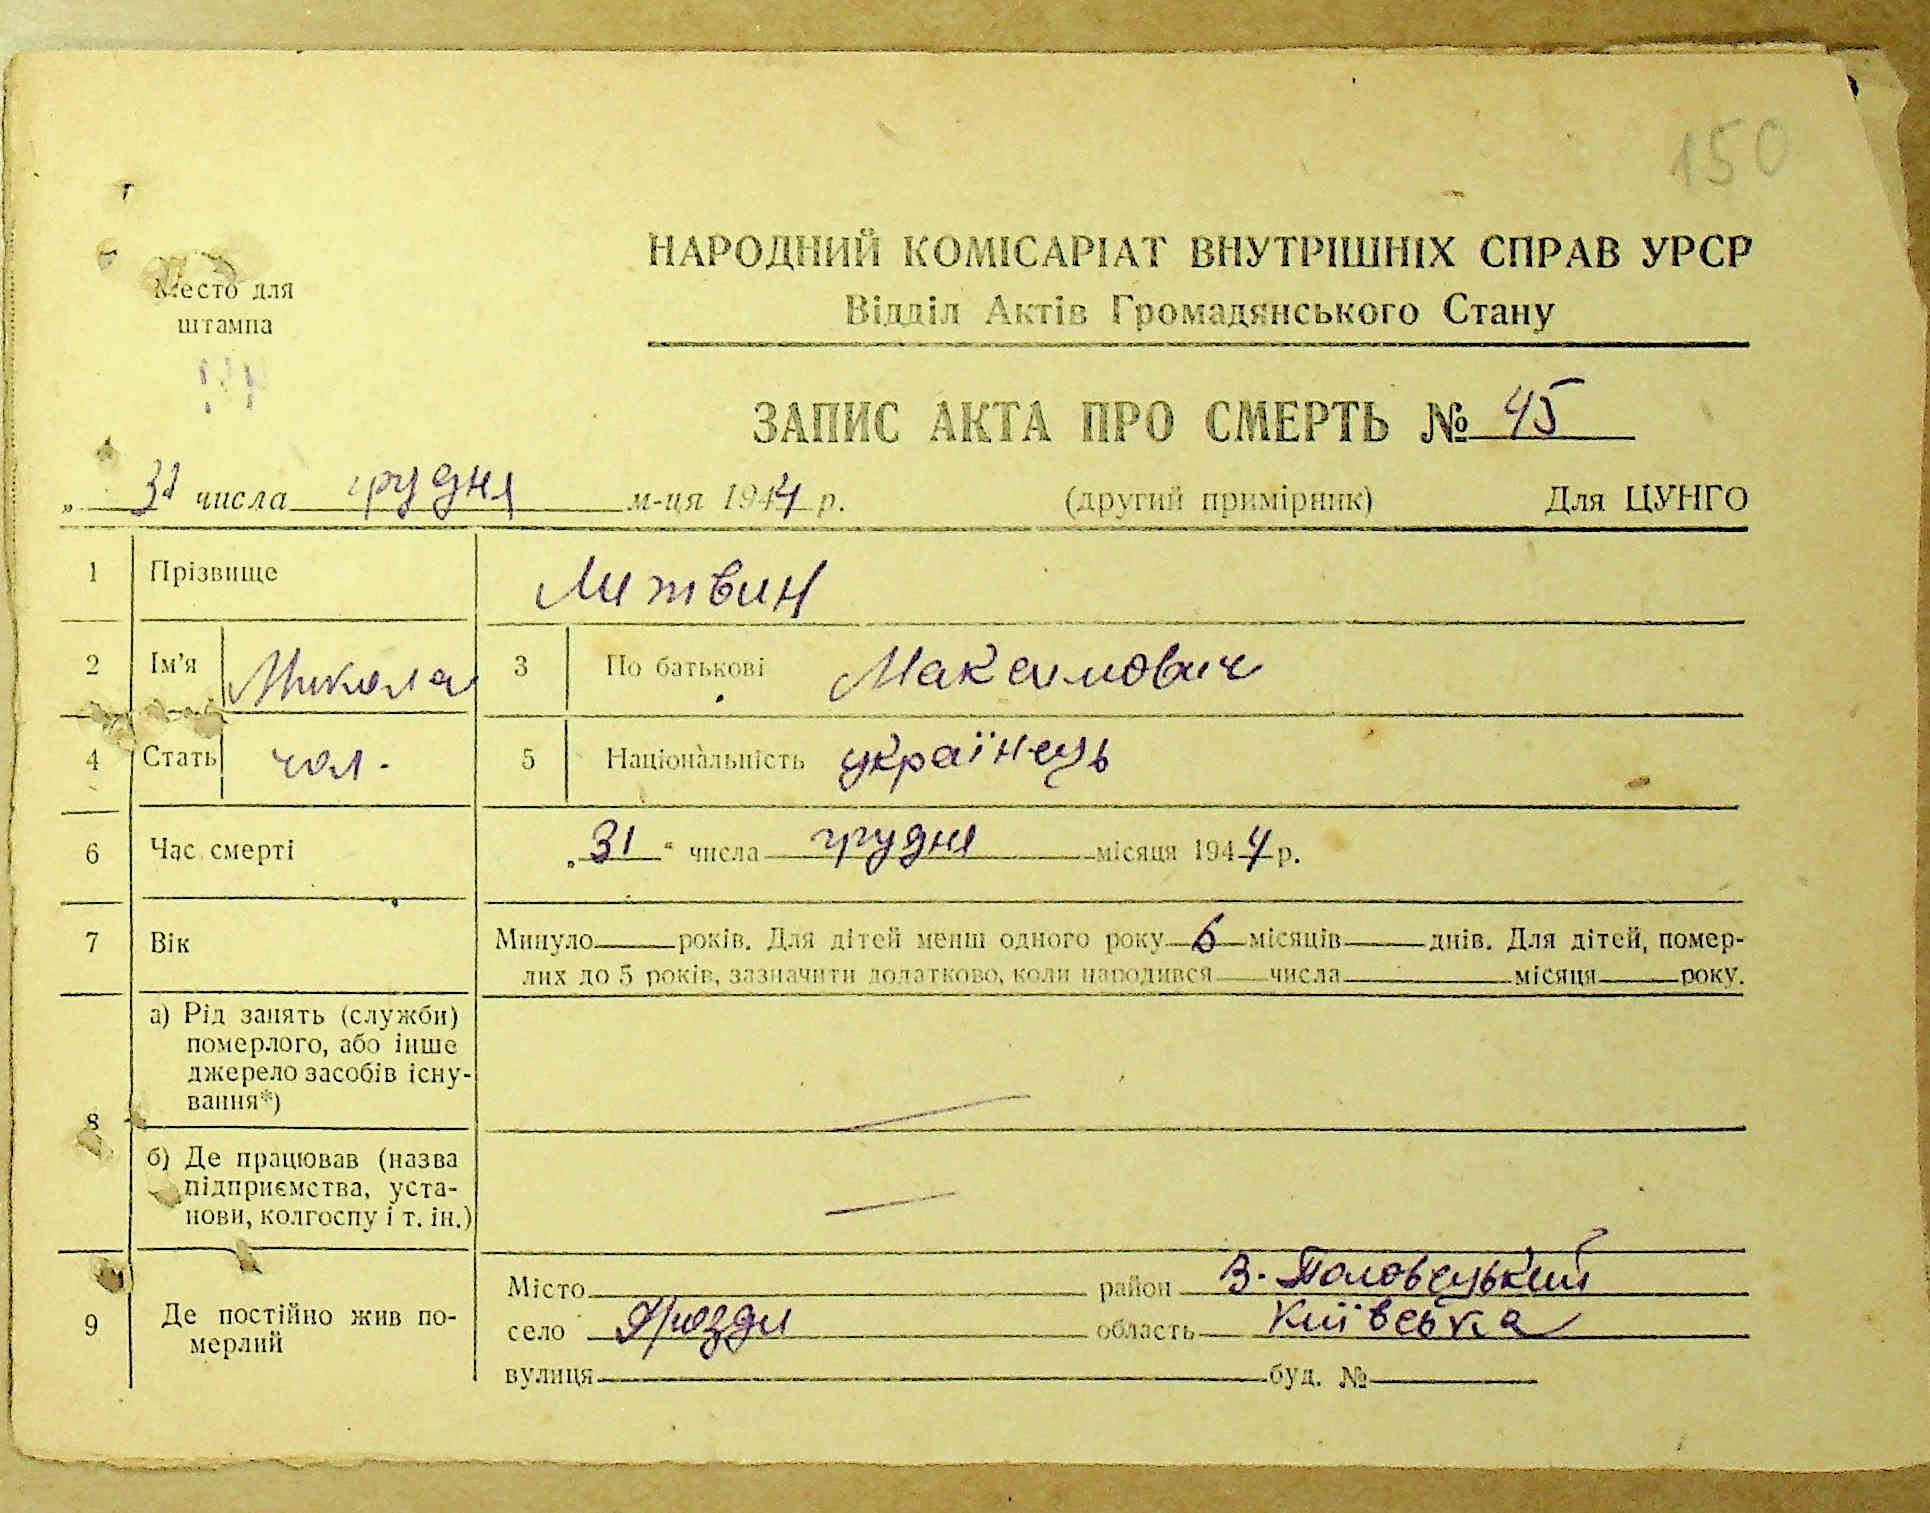 150
Место для
штампа
НАРОДНИЙ КОМІСАРІАТ ВНУТРІШНІХ СПРАВ УРСР
Відділ Актів Громадянського Стану
ЗАПИС АКТА ПРО СМЕРТЬ № 45
„ 31 числа грудня м-ця 1944 р. (другий примірник) Для ЦУНГО
1 Прізвище Литвин
2 Ім'я Микола 3 По батькові Максимович
4 Стать чол. 5 Національність українець
6 Час смерті „31“ числа грудня місяця 1944 р.
7 Вік Минуло років. Для дітей менш одного року 6 місяців днів. Для дітей, помер-
лих до 5 років, зазначити додатково, коли народився числа місяця року.
8 а) Рід занять (служби)
померлого, або інше
джерело засобів існу-
вання*)
б) Де працював (назва
підприємства, уста-
нови, колгоспу і т. ін.)
9 Де постійно жив по-
мерлий
Місто район В. Половецький
село Дрозди область Київська
вулиця буд. №